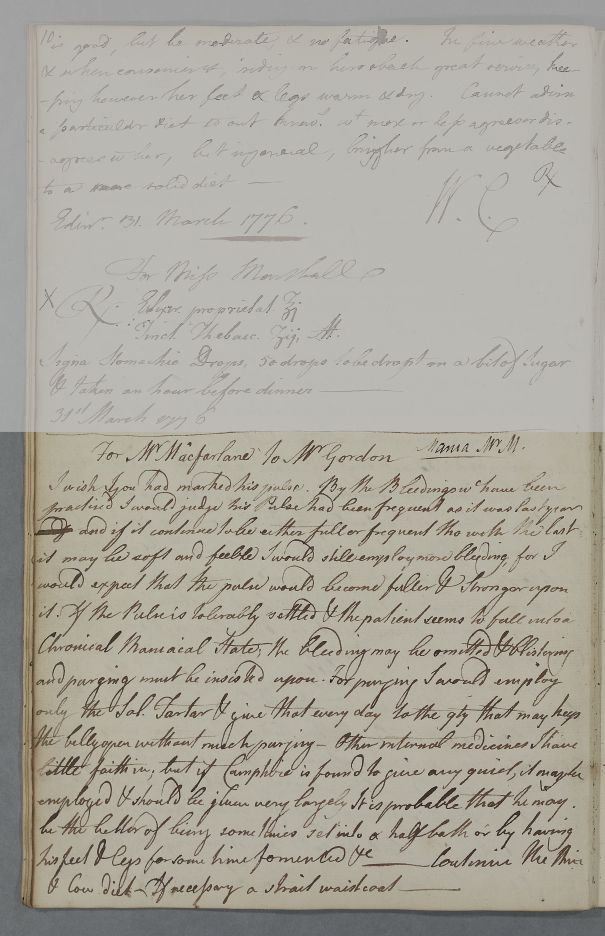 10
is good, but be moderate, & no fatigue. In fine weather
& when convenient, riding on horseback great service, kee-
-ping however her feet & legs warm & dry. Cannot advise
a particular diet as not know.g wt. more or less agrees or dis-
-agrees wt her, but in general, bring her from a vegetable
to a more solid diet —
Edinr. 31. March 1776. W. C. ℞
For Miss Marshall
x ℞. Elixr. proprietat. ʒj
Tinct. Thebaic. ʒij, M.
Signa Stomachic Drops, 50 drops to be dropt on a bit of Sugar
& taken an hour before dinner —
31st March 1776
For Mr. Macfarlane to Mr Gordon Mania Mr. M.
I wish you had marked his pulse. By the Bleedings wc have been
practised I would judge his Pulse had been frequent as it was last year
and if it continue to be either full or frequent tho with the last
it may be soft and feeble I would still employ more bleeding, for I
would expect that the pulse would become fuller & stronger upon
it. If the Pulse is tolerably settled & the patient seems to fall into a
Chronical Maniacal State, the bleeding may be omitted & blistering
and purging must be insisted upon. For purging I would employ
only the Sol. Tartar & give that every day to the qty that may keep
the belly open without much purging — Other internal medicines I have
little faith in, but if Camphire is found to give any quiet, it may be
employed & should be given very largely It is probable that he may
be the better of being sometimes set into a half bath or by having
his feet & legs for some time fomented &c — Continue the thin
& low diet — If necessary a strait waistcoat —